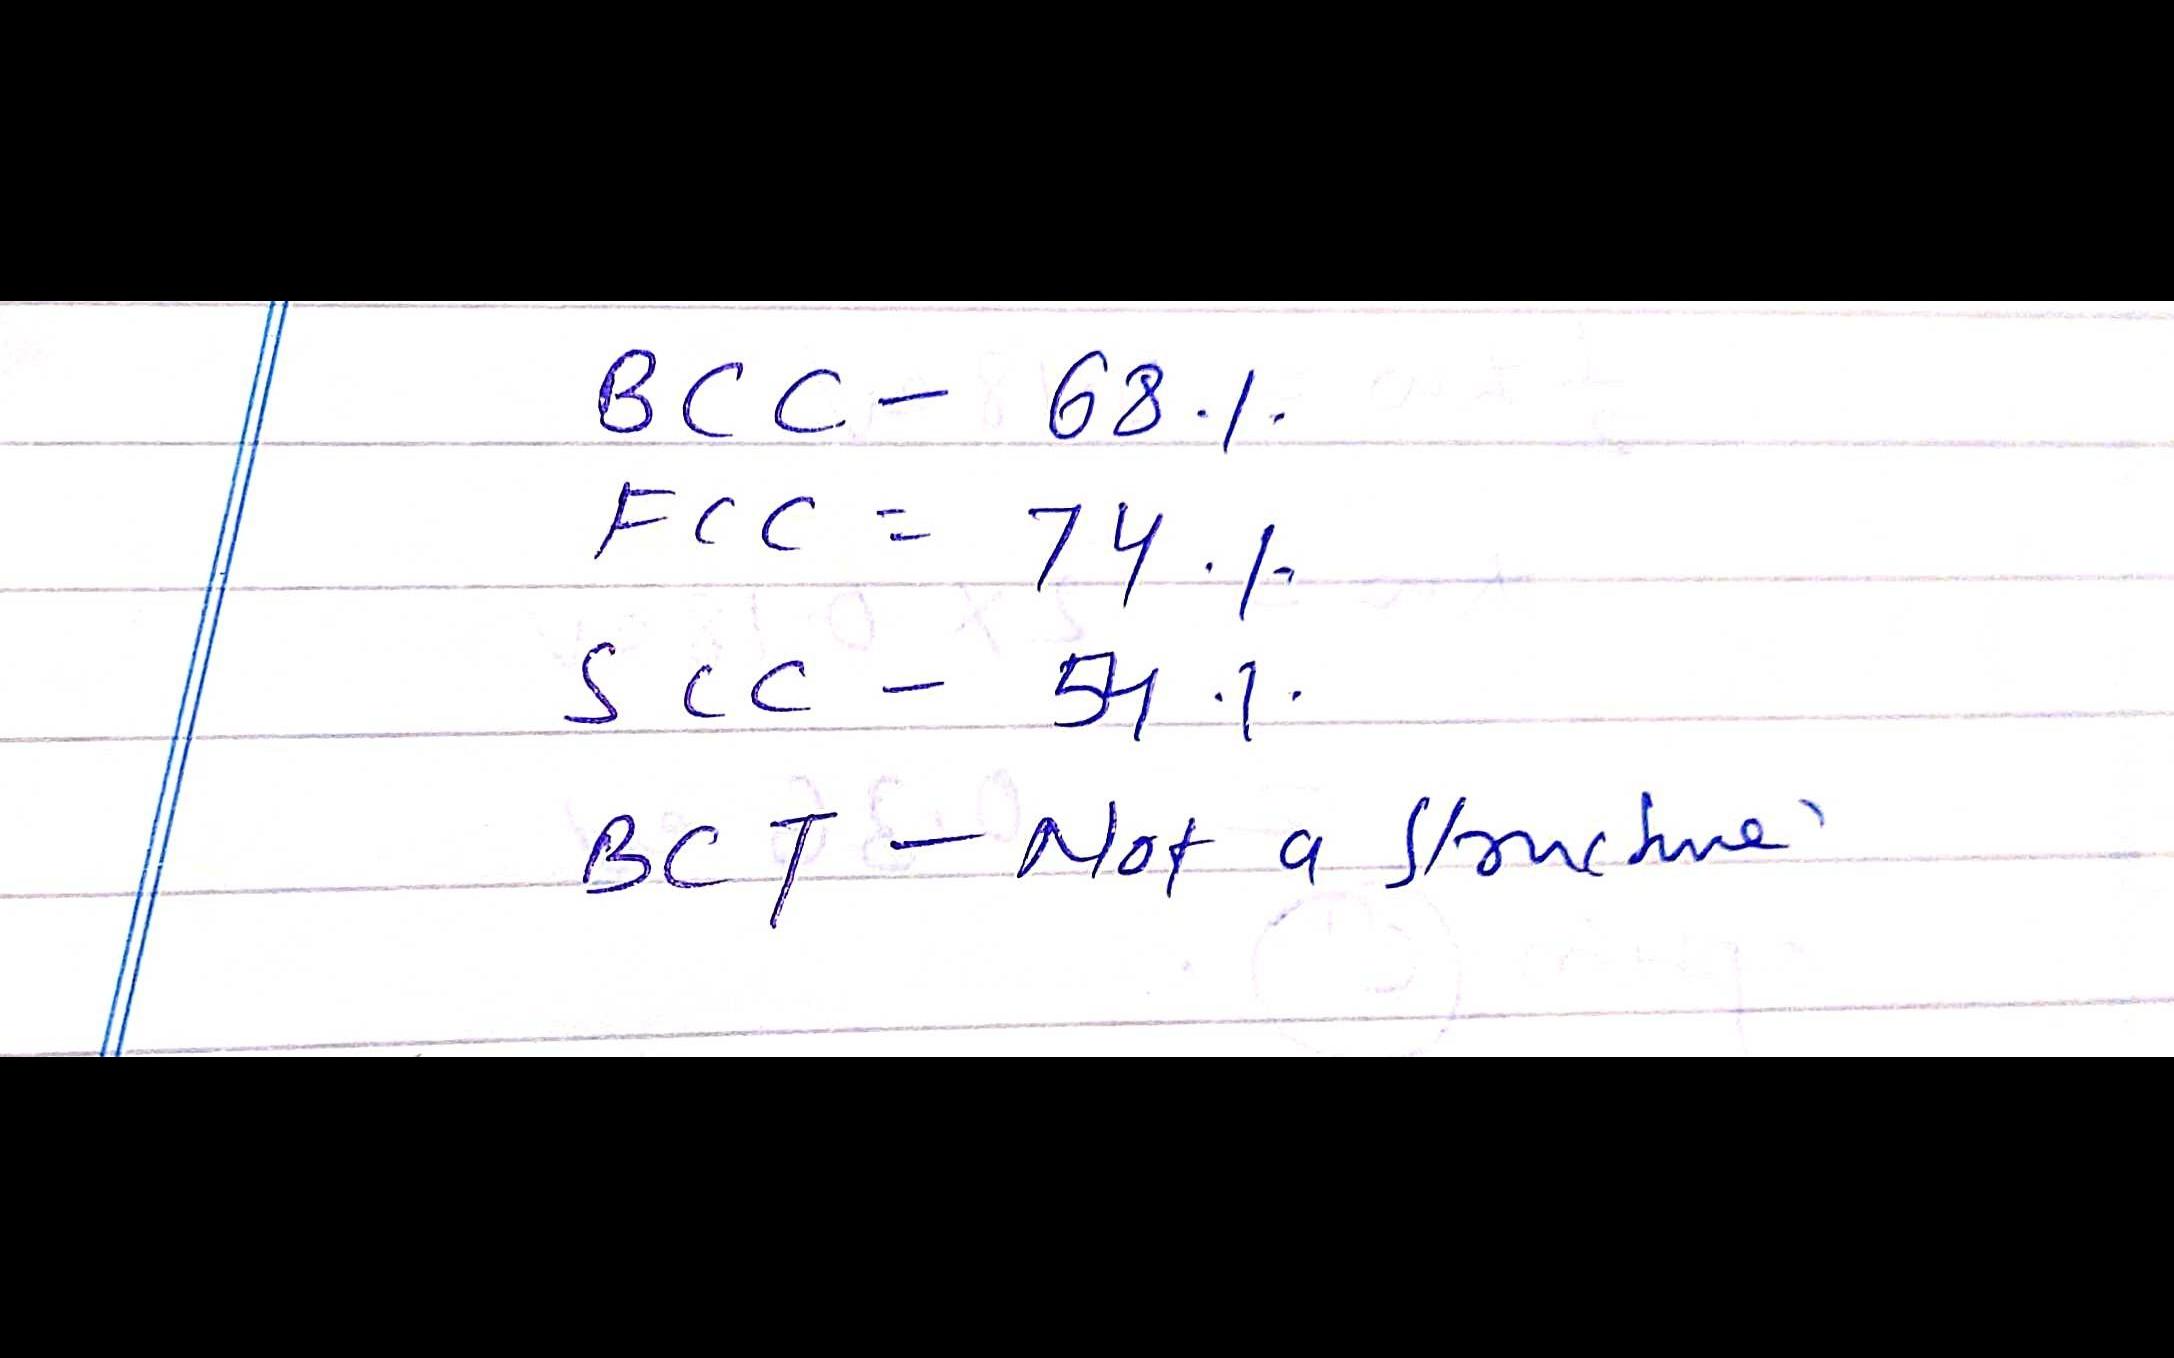 BCC - 68%
FCC = 74%
SCC - 54%
BCT - Not a structure